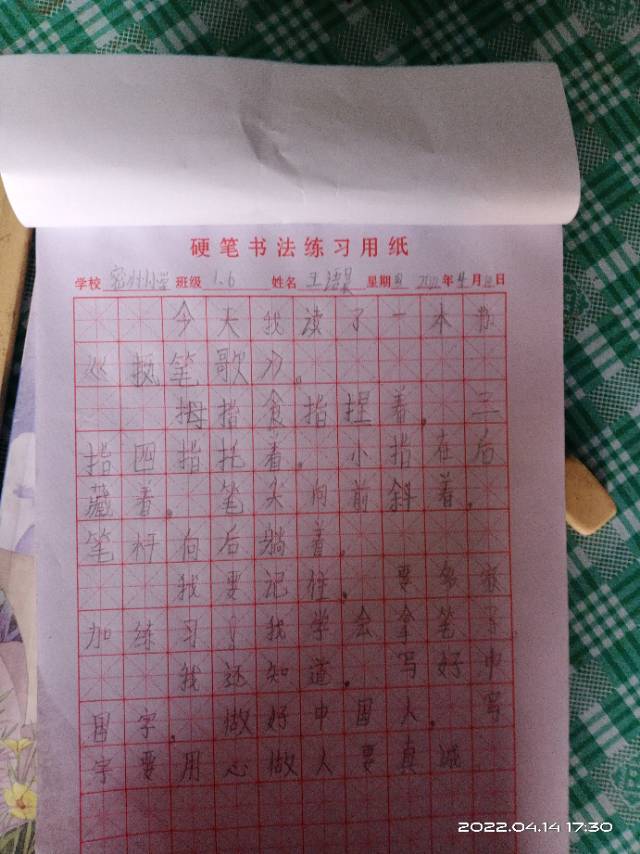 硬笔书法练习用纸
学校 密州小学 班级 1.6 姓名 王 星期四 2022年4月日
今天我读了一本
执笔歌》。
拇指食指捏着。三
指四指托着。小指在后
藏着。笔头向前斜着。
笔杆向后躺着。
我要记住。要多
加练习！我学会拿笔字
我还知道。写好中
国字。做好中国人。写
字要用心做人要真诚
2022.04.14 17:30